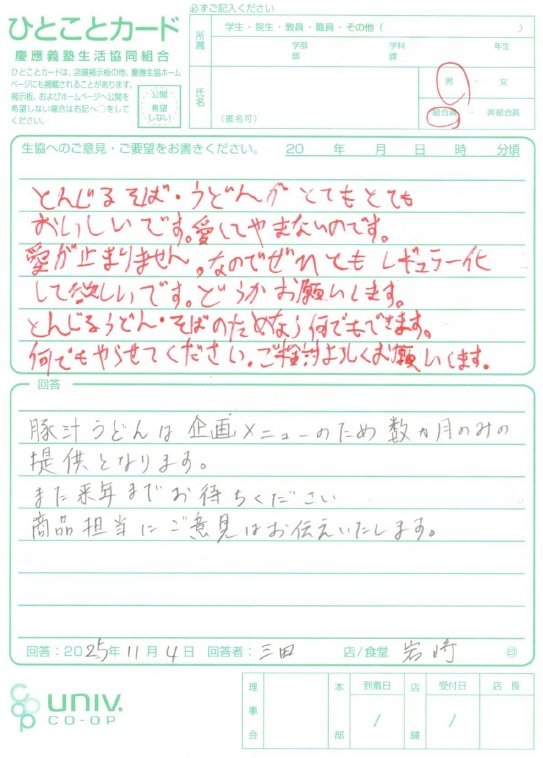 必ずご記入ください
ひとことカード
慶應義塾生活協同組合
ひとことカードは、店舗掲示板の他、慶應生協ホーム
ページにも掲載されることがあります。
掲示板、およびホームページへ公開を
希望しない場合は右記へ○をして
ください。
公開
希望
しない
所属
学生・院生・教員・職員・その他（　　　）
学部　学科　年生
部　課
氏名
（匿名可）
男・女
組合員・非組合員
生協へのご意見・ご要望をお書きください。　20　年　月　日　時　分頃
とんじるそば・うどんがとてもとても
おいしいです。愛してやまないのです。
愛が止まりません。なのでぜひともレギュラー化
して欲しいです。どうかお願いします。
とんじるうどん・そばのためなら何でもできます。
何でもやらせてください。ご検討よろしくお願いします。
回答
豚汁うどんは企画メニューのため数カ月のみの
提供となります。
また来年までお待ちください
商品担当にご意見はお伝えいたします。
回答：2025年11月4日　回答者：三田　店/食堂　岩崎　㊞
univ.
CO-OP
理事会
本部
到着日
/
店舗
受付日
/
店長